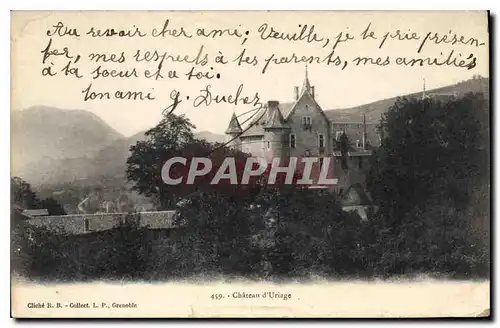 Au revoir cher ami; Veuille, je te prie présen-
ter, mes respects à tes parents, mes amitiés
à ta soeur et a toi.
Ton ami G. Duclez
CPARAMA.COM
459. - Château d'Uriage
Cliché R. B. - Collect. L. P., Grenoble